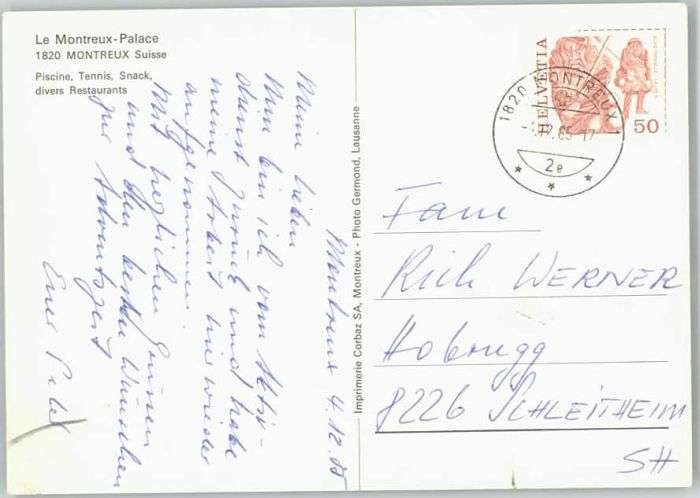 Le Montreux-Palace
1820 MONTREUX Suisse
Piscine, Tennis, Snack,
divers Restaurants
Montreux 4.12.85
Meine Lieben
Nun bin ich vom Aktiv-
dienst zurück und habe
meine Arbeit hier wieder
aufgenommen.
Mit herzlichen Grüssen
und den besten Wünschen
zur Adventszeit
Euer
Imprimerie Corbaz SA, Montreux - Photo Germond, Lausanne
HELVETIA
50
1820 MONTREUX 1
.12.85-17
2e
Fam
Rich WERNER
Hobrugg
8226 SCHLEITHEIM
SH